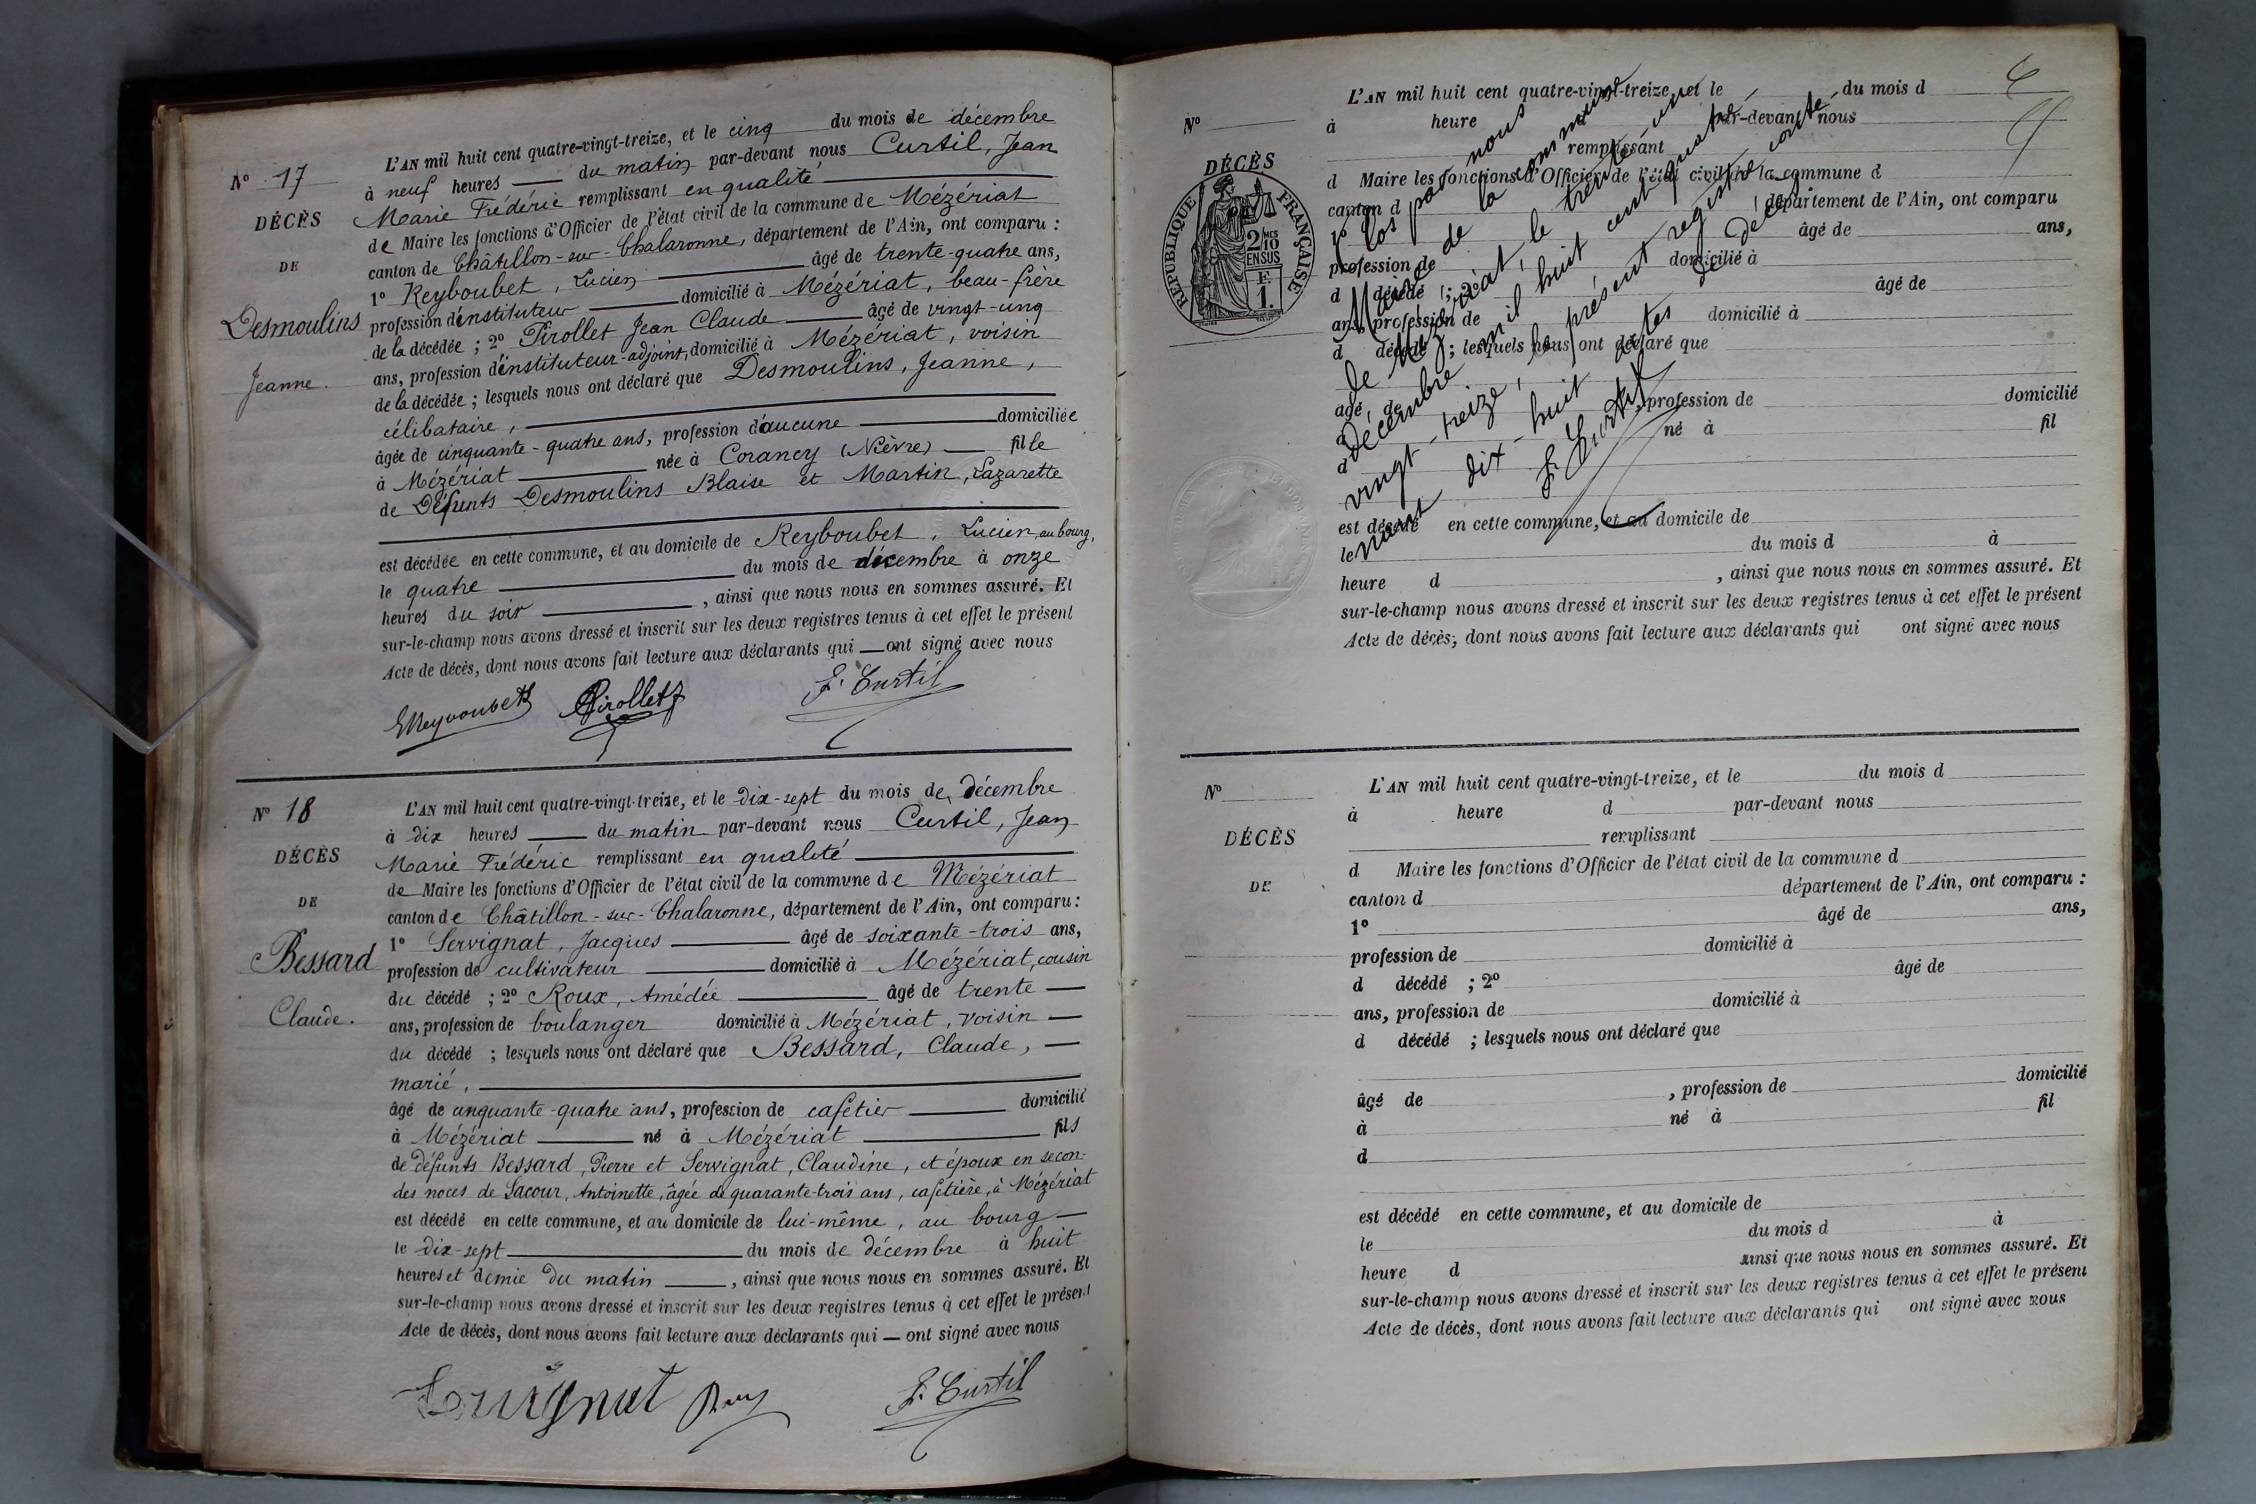 N° 17
DÉCÈS
DE
Desmoulins
Jeanne.
L'AN mil huit cent quatre-vingt-treize, et le cinq du mois de décembre
à neuf heures du matin par-devant nous Curtil, Jean
Marie Frédéric remplissant en qualité
de Maire les fonctions d'Officier de l'état civil de la commune de Mézériat
canton de Châtillon-sur-Chalaronne, département de l'Ain, ont comparu :
1° Reyboubet, Lucien âgé de trente-quatre ans,
profession d'instituteur domicilié à Mézériat, beau-frère
de la décédée ; 2° Pirollet Jean Claude âgé de vingt-un
ans, profession d'instituteur-adjoint, domicilié à Mézériat, voisin
de la décédée ; lesquels nous ont déclaré que Desmoulins, Jeanne,
célibataire,
âgée de cinquante-quatre ans, profession d'aucune domiciliée
à Mézériat née à Corancy (Nièvre) fille
de Défunts Desmoulins Blaise et Martin, Lazarette
est décédée en cette commune, et au domicile de Reyboubet, Lucien, au bourg,
le quatre du mois de décembre à onze
heures du soir , ainsi que nous nous en sommes assuré. Et
sur-le-champ nous avons dressé et inscrit sur les deux registres tenus à cet effet le présent
Acte de décès, dont nous avons fait lecture aux déclarants qui ont signé avec nous
Pirollet F. Curtil
N° 18
DÉCÈS
DE
Bessard
Claude.
L'AN mil huit cent quatre-vingt-treize, et le dix-sept du mois de décembre
à dix heures du matin par-devant nous Curtil, Jean
Marie Frédéric remplissant en qualité
de Maire les fonctions d'Officier de l'état civil de la commune de Mézériat
canton de Châtillon-sur-Chalaronne, département de l'Ain, ont comparu :
1° Servignat, Jacques âgé de soixante-trois ans,
profession de cultivateur domicilié à Mézériat, cousin
du décédé ; 2° Roux, Amédée âgé de trente
ans, profession de boulanger domicilié à Mézériat, voisin
du décédé ; lesquels nous ont déclaré que Bessard, Claude,
marié,
âgé de cinquante-quatre ans, profession de cafetier domicilié
à Mézériat né à Mézériat fils
de défunts Bessard, Pierre et Servignat, Claudine, et époux en secon-
des noces de Lacour, Antoinette, âgée de quarante-trois ans, cafetière, à Mézériat
est décédé en cette commune, et au domicile de lui-même, au bourg
le dix-sept du mois de décembre à huit
heures et demie du matin , ainsi que nous nous en sommes assuré. Et
sur-le-champ nous avons dressé et inscrit sur les deux registres tenus à cet effet le présent
Acte de décès, dont nous avons fait lecture aux déclarants qui ont signé avec nous
F. Curtil
N°
DÉCÈS
RÉPUBLIQUE FRANÇAISE
2/10 MES
EN SUS
1 F.
L'AN mil huit cent quatre-vingt-treize, et le du mois d
à heure par-devant nous
remplissant
d Maire les fonctions d'Officier de l'état civil de la commune d
canton d département de l'Ain, ont comparu
1° âgé de ans,
profession de domicilié à
d décédé ; 2° âgé de
ans, profession de domicilié à
d décédé ; lesquels nous ont déclaré que
âgé de , profession de domicilié
à né à fil
d
est décédé en cette commune, et au domicile de
le du mois d à
heure d , ainsi que nous nous en sommes assuré. Et
sur-le-champ nous avons dressé et inscrit sur les deux registres tenus à cet effet le présent
Acte de décès, dont nous avons fait lecture aux déclarants qui ont signé avec nous
Clos par nous
Maire de la commune
de Mézériat, le trente-un
décembre mil huit cent quatre-
vingt-treize, le présent registre conte-
nant dix-huit actes de décès.
F. Curtil
N°
DÉCÈS
DE
L'AN mil huit cent quatre-vingt-treize, et le du mois d
à heure d par-devant nous
remplissant
d Maire les fonctions d'Officier de l'état civil de la commune d
canton d département de l'Ain, ont comparu :
1° âgé de ans,
profession de domicilié à
d décédé ; 2° âgé de
ans, profession de domicilié à
d décédé ; lesquels nous ont déclaré que
âgé de , profession de domicilié
à né à fil
d
est décédé en cette commune, et au domicile de
le du mois d à
heure d ainsi que nous nous en sommes assuré. Et
sur-le-champ nous avons dressé et inscrit sur les deux registres tenus à cet effet le présent
Acte de décès, dont nous avons fait lecture aux déclarants qui ont signé avec nous